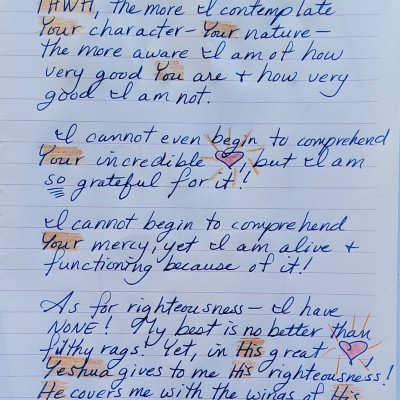 YHWH, the more I contemplate
Your character - Your nature -
the more aware I am of how
very good You are + how very
good I am not.
I cannot even begin to comprehend
Your incredible , but I am
so grateful for it!
I cannot begin to comprehend
Your mercy; yet I am alive +
functioning because of it!
As for righteousness - I have
NONE! My best is no better than
filthy rags. Yet, in His great ,
Yeshua gives to me His righteousness!
He covers me with the wings of His